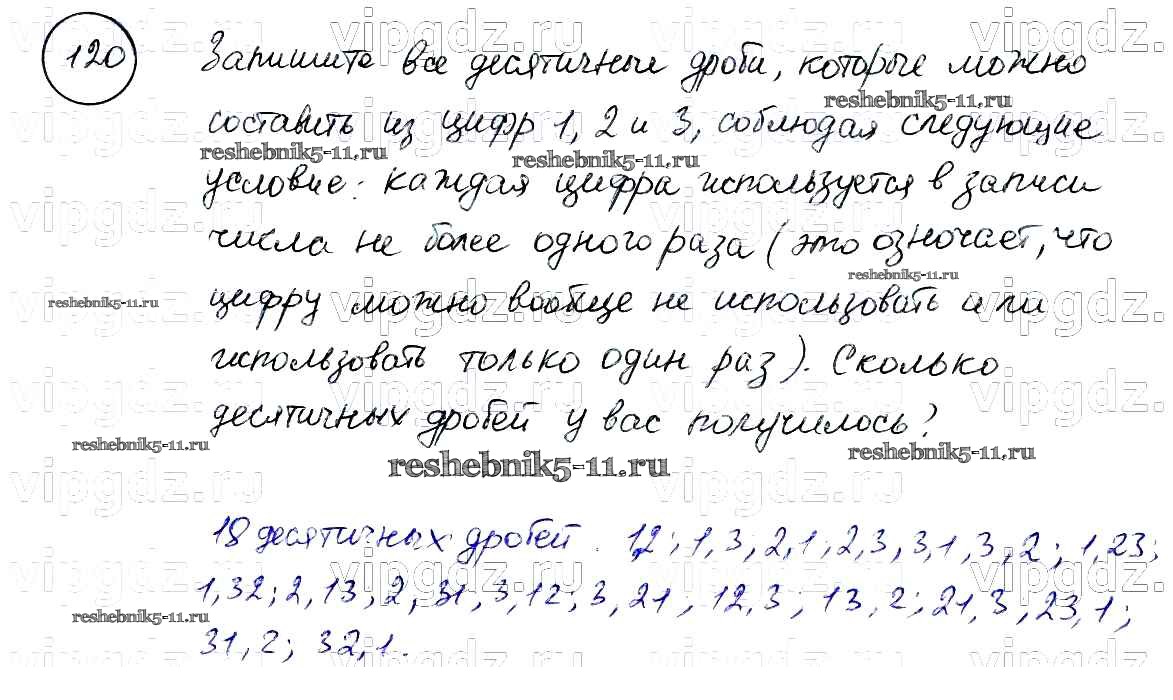 120 Запишите все десятичные дроби, которые можно
составить из цифр 1, 2 и 3, соблюдая следующие
условие: каждая цифра используется в записи
числа не более одного раза (это означает, что
цифру можно вообще не использовать или
использовать только один раз). Сколько
десятичных дробей у вас получилось?
reshebnik5-11.ru
18 десятичных дробей. 1,2; 1,3; 2,1; 2,3; 3,1; 3,2; 1,23;
1,32; 2,13; 2,31; 3,12; 3,21; 12,3; 13,2; 21,3; 23,1;
31,2; 32,1.